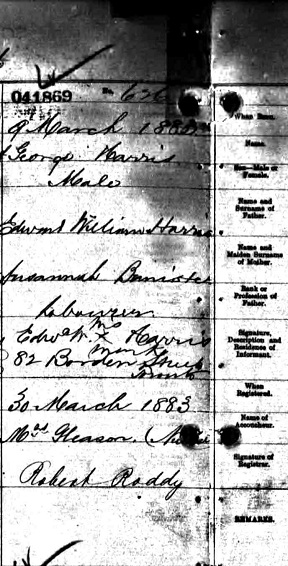 041869
No. 626
9 March 1883
When Born.
George Harris
Name.
Male
Sex—Male or
Female.
Edward William Harris
Name and
Surname of
Father.
Susannah Banister
Name and
Maiden Surname
of Mother.
Labourer
Rank or
Profession of
Father.
Edwd W. X Harris
mark
82 Borden Street
Signature,
Description and
Residence of
Informant.
30 March 1883
When
Registered.
Mrs Gleason.
Name of
Accoucheur.
Robert Roddy
Signature of
Registrar.
REMARKS.